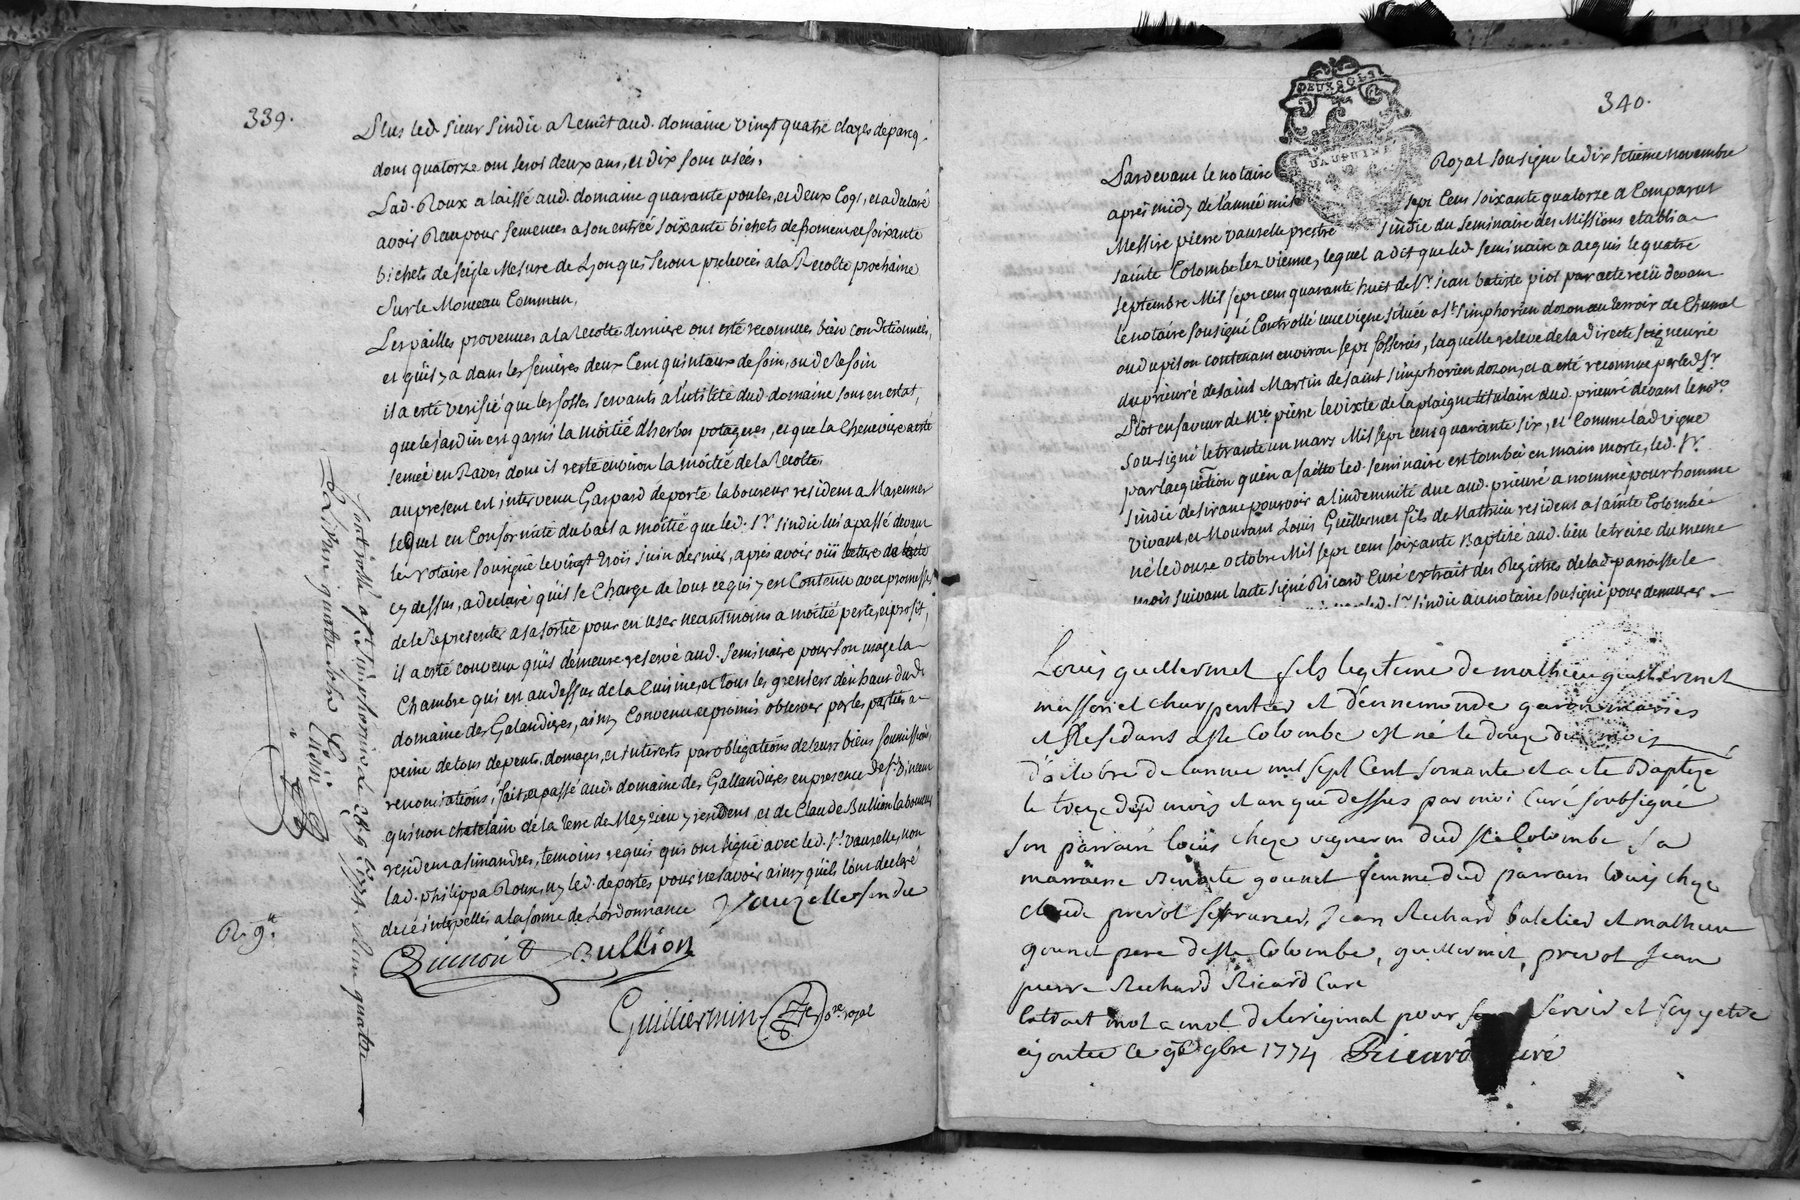 339.
Plus led. sieur sindic a Remit aud. domaine vingt quatre clayes de parcq.
dont quatorze ont servi deux ans, et dix sont usées.
Lad. Roux a laissé aud. domaine quarante poules, et deux Coqs, et a declaré
avoir Reçu pour semences a son entrée soixante bichets de froment et soixante
bichets de seigle Mesure de Lyon qui seront prelevées a la Recolte prochaine
Sur le Monceau Commun.
Les pailles provenues a la recolte derniere ont esté reconnues bien conditionnées,
et qu'il y a dans les fenieres deux Cent quintaux de foin, ou de Refoin
il a esté verifié que les fosses servants a l'utilité dud. domaine sont en estat,
que le jardin est garni la moitié d'herbes potageres, et que la Cheneviere a esté
semée en Raves dont il reste environ la moitié de la Recolte.
au present est intervenu Gaspard deporte laboureur resident a Marennes
lequel en Conformité du bail a moitié que led. Sr. sindic lui a passé devant
le Notaire sousigné le vingt trois Juin dernier, après avoir oüi lecture de l'acte
cy dessus, a declaré qu'il se Charge de tout ce qui y est Contenu avec promesse
de le Representer a sa sortie pour en user neantmoins a moitié perte, et profit,
il a esté convenu qu'il demeure reservé aud. Seminaire pour son usage la
Chambre qui est au dessus de la Cuisine, et tous les greniers d'en haut dud.
domaine des Galandises, ainsy Convenu et promis observer par les parties a
peine de tous depents, domages, et interests par obligations de leurs biens soumissions,
renonciations, fait et passé aud. domaine des Gallandises en presence de Sr. Vincent
quinon chatelain de la terre de Meyzieu y resident, et de Claude Bullion laboureur
resident a simandres, temoins requis qui ont signé avec led. Sr. Vauzelle, non
lad. Philippa Roux, ny led. deportes pour ne savoir ainsy qu'ils l'ont declaré
de ce interpellés a la forme de L'ordonnance Vauzelle sindic
Quinon Bullion
Guilliermin No.re royal
Controllé a St. Simphorien le 28 9bre 1774
340.
DEUX SOLS
DAUPHINÉ
Pardevant le notaire Royal sousigné le dix septieme novembre
après midy de l'année mil sept Cent soixante quatorze a Comparut
Messire pierre vauzelle prestre sindic du seminaire des Missions etabli a
sainte Colombe lez vienne, lequel a dit que led. seminaire a acquis le quatre
septembre Mil sept cent quarante huit de Sr. Jean batiste piot par acte reçu devant
le notaire sousigné Controllé une vigne située a St. Simphorien dozon au terroir de Chumal
ou du pison contenant environ sept fosserées, laquelle releve de la directe seigneurie
du prieuré de saint Martin de saint simphorien dozon, et a esté reconnue par led. Sr.
Piot en faveur de Mre. pierre levixte de la plaigne titulaire dud. prieuré devant le nore.
sousigné le trante un mars Mil sept cent quarante six, et Comme lad. vigne
par l'acquisition qu'en a faitte led. seminaire est tombée en main morte, led. Sr.
sindic desirant pourvoir a l'indemnité due aud. prieuré a nommé pour homme
vivant, et Mourant Louis Guillermet fils de Mathieu resident a sainte Colombe
né le douze octobre Mil sept cent soixante Baptisé aud. lieu le treize du meme
mois suivant l'acte signé Ricard Curé extrait des Registres de lad. paroisse le
led. Sr. sindic au notaire sousigné pour demeurer
Louis guillermet fils legitime de mathieu guillermet
masson et charpentier et d'ennemonde garon mariés
et Residants a Ste Colombe est né le douze du mois
d'octobre de l'annee mil sept Cent soixante et a ete Baptizé
le treize dud mois et an que dessus par moi Curé soubsigné
son parrain loüis cheze vigneron dud Ste Colombe sa
marraine benoite gounet femme dud parrain louis cheze
claude prevot serrurier, Jean Richard batelier et mathieu
gounet pere de Ste Colombe, guillermet, prevot Jean
pierre Richard Ricard Cure
Extrait mot a mot de l'original pour servir et foy y etre
ajoutee ce 9bre 1774 Ricard curé